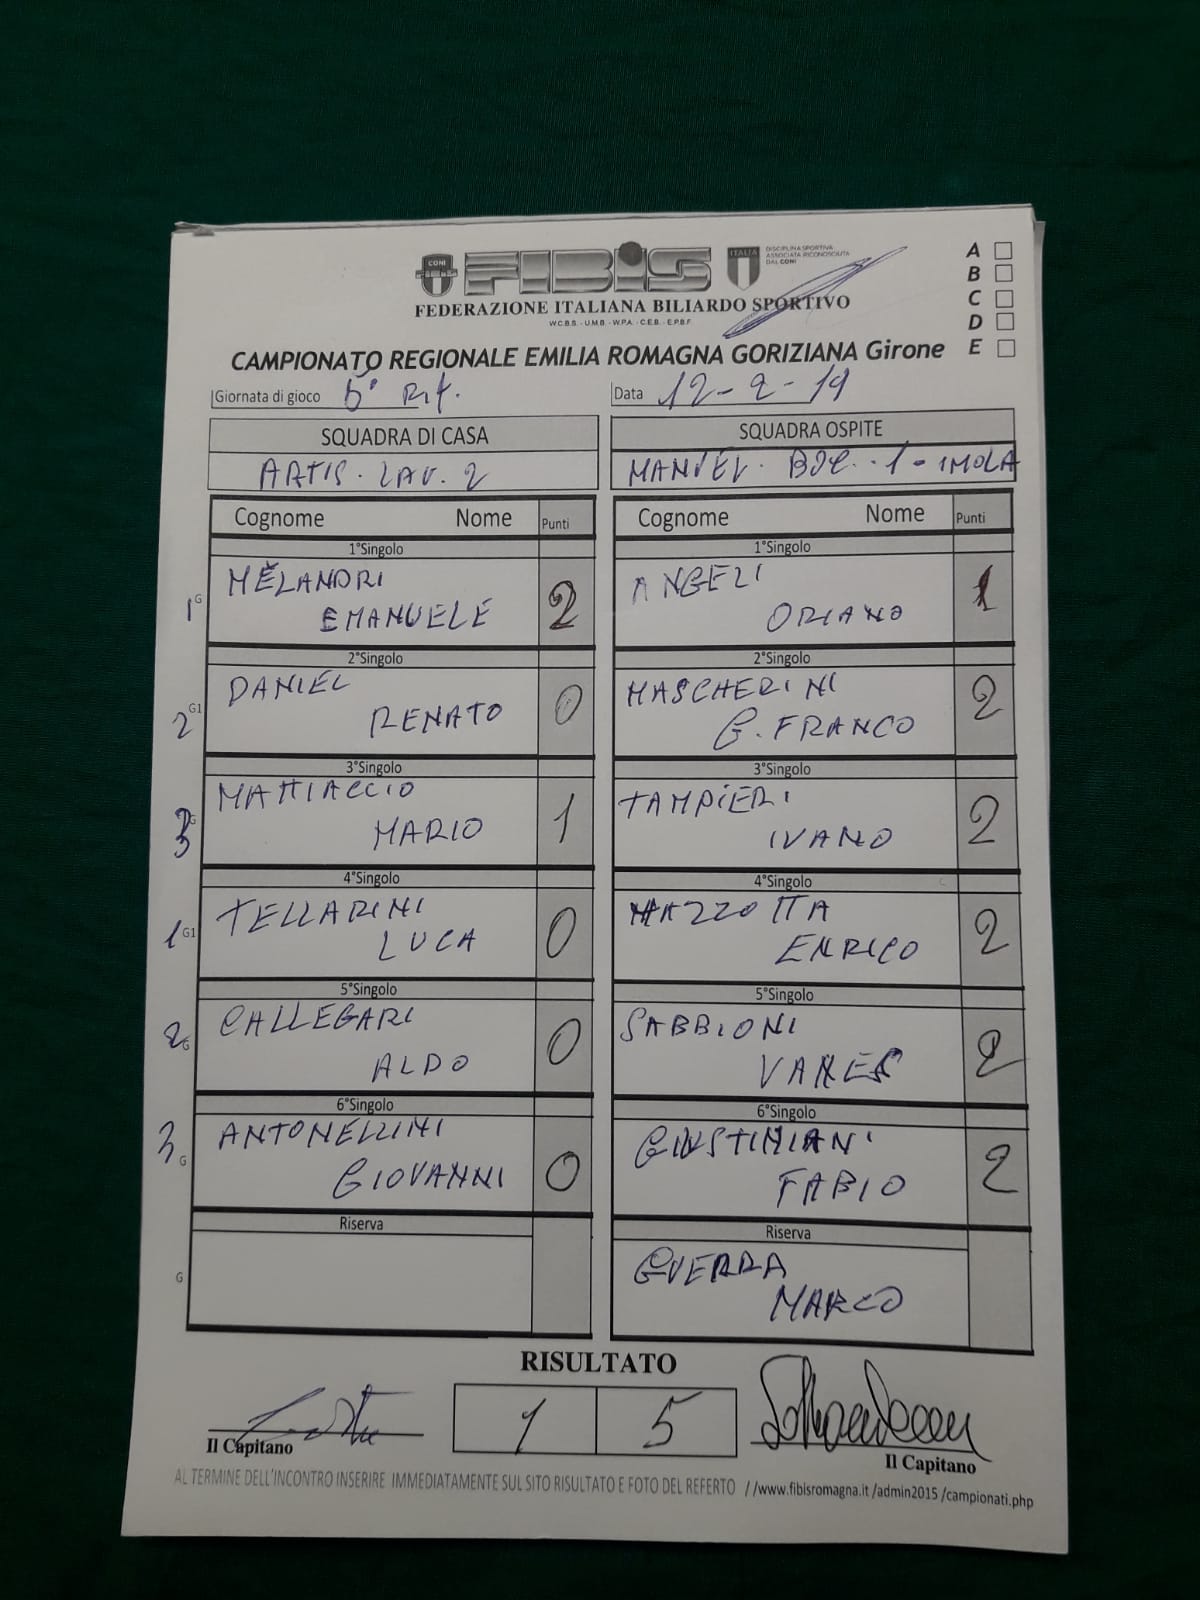 CONI
FIBIS
ITALIA
DISCIPLINA SPORTIVA
ASSOCIATA RICONOSCIUTA
DAL CONI
FEDERAZIONE ITALIANA BILIARDO SPORTIVO
W.C.B.S. - U.M.B. - W.P.A. - C.E.B. - E.P.B.F.
A
B
C
D
E
CAMPIONATO REGIONALE EMILIA ROMAGNA GORIZIANA Girone
Giornata di gioco 5° Rit.
Data 12-2-19
SQUADRA DI CASA
ARTIS. LAV. 2
SQUADRA OSPITE
MANUEL. BDC. 1-IMOLA
Cognome Nome Punti
Cognome Nome Punti
1°Singolo
1°Singolo
1 G MELANDRI
EMANUELE 2
ANGELI
ORIANO 1
2°Singolo
2°Singolo
2 G1 DANIEL
RENATO 0
MASCHERINI
G. FRANCO 2
3°Singolo
3°Singolo
3 G MATTIACCIO
MARIO 1
TAMPIERI
IVANO 2
4°Singolo
4°Singolo
1 G1 TELLARINI
LUCA 0
MAZZOTTA
ENRICO 2
5°Singolo
5°Singolo
2 G CALLEGARI
ALDO 0
SABBIONI
VANES 2
6°Singolo
6°Singolo
3 G ANTONELLINI
GIOVANNI 0
GIUSTINIANI
FABIO 2
Riserva
Riserva
G
GUERRA
MARCO
RISULTATO
1 5
Il Capitano
Il Capitano
AL TERMINE DELL'INCONTRO INSERIRE IMMEDIATAMENTE SUL SITO RISULTATO E FOTO DEL REFERTO //www.fibisromagna.it /admin2015 /campionati.php